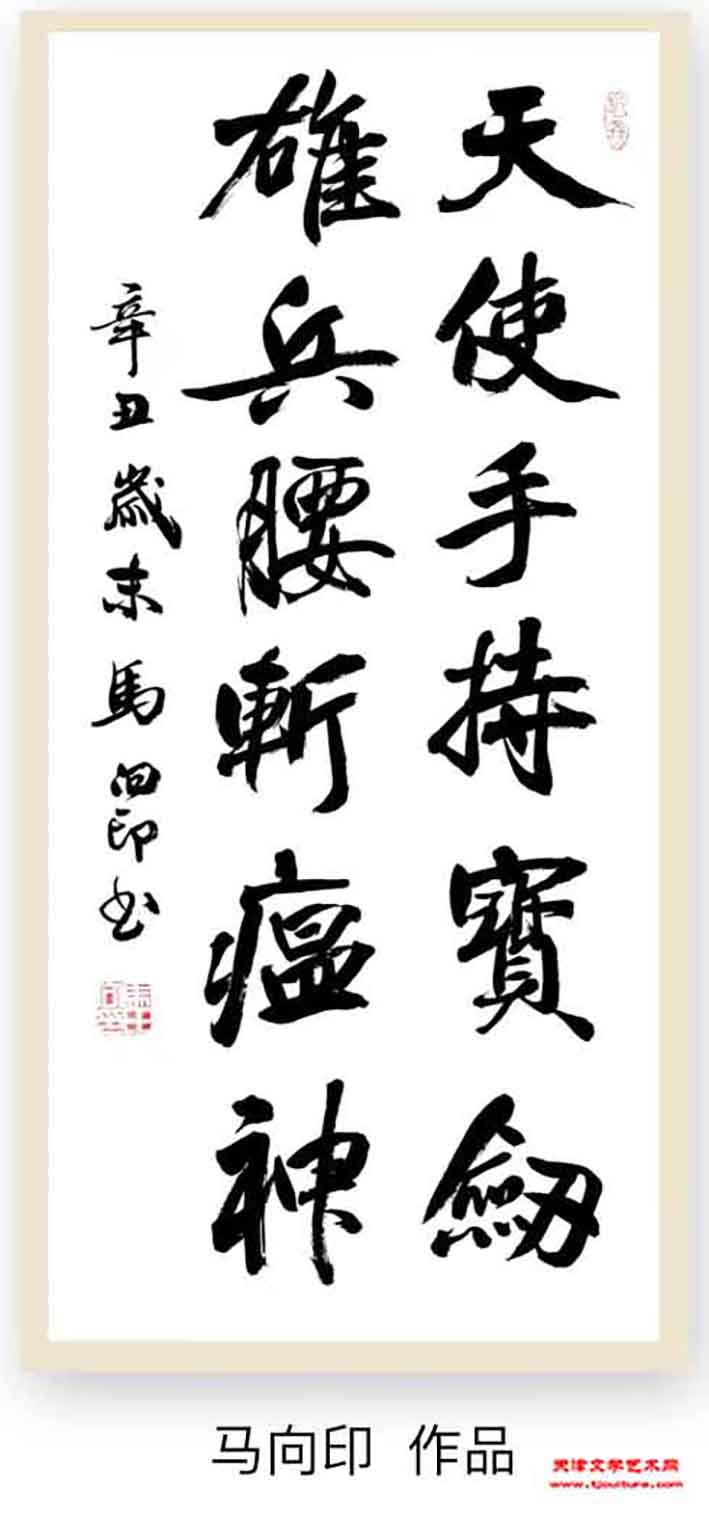 天使手持寶劒
雄兵腰斬瘟神
辛丑歲末馬向印书
马向印 作品
天津文学艺术网
www.tjculture.com